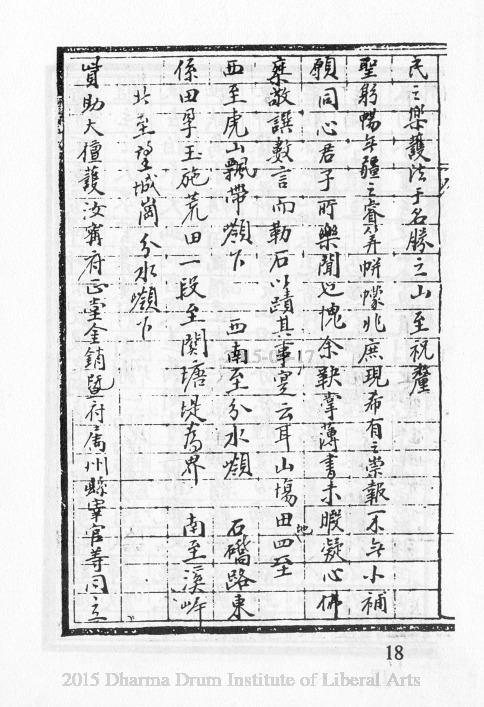 民之樂護法于名勝之山至祝釐
聖躬暢無疆之睿筭帡幪兆庶現希有之崇報不無小補
願同心君子所樂聞也愧余鞅掌薄書未暇凝心佛
乘敬譔數言而勒石以蹟其事寔云耳山塲田地四至
西至虎山飄帶嶺下 西南至分水嶺 石礄路東
係田孚玉施荒田一段至関塘堤為界 南至溪岸
北至望城崗分水嶺下
貲助大檀護汝寧府正堂金鋿暨府属州縣宰官等同立
18
2015 Dharma Drum Institute of Liberal Arts